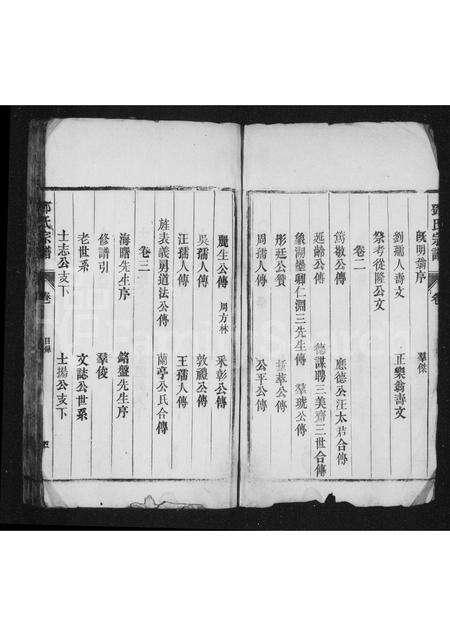 旣明翁序　羣傑
劉孺人壽文　正樂翁壽文
祭考從隆公文
卷二
篤敬公傳　應德公汪太君合傳
延齡公傳　德謀聘三美齋三世合傳
象湖變卿仁淵三先生傳　羣琥公傳
彤廷公贊　公傳
周孺人傳　公平公傳
麗生公傳　周方林　釆彰公傳
吳孺人傳　敦禮公傳
汪孺人傳　王孺人傳
旌表義男道法公傳　蘭亭公氏合傳
卷三
海曙先生序　銘盤先生序
修譜引　羣俊
老世系　文誌公世系
士志公支下　士揚公支下
氏宗譜　卷　目錄